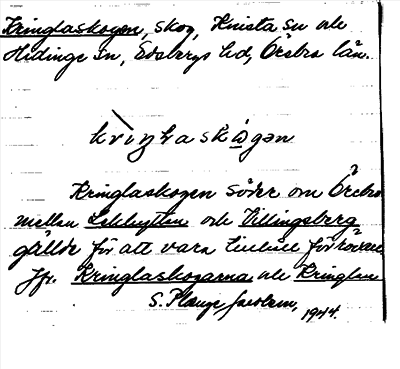 Kringlaskogen, skog, Knista sn och
Hidinge sn, Edsbergs hd, Örebro län.
Kringlaskogen söder om Örebro
mellan Lekhyttan och Villingsberg
gällde för att vara tillhåll för rövare.
Jfr. Kringlaskogarna och Kringlan
1944.